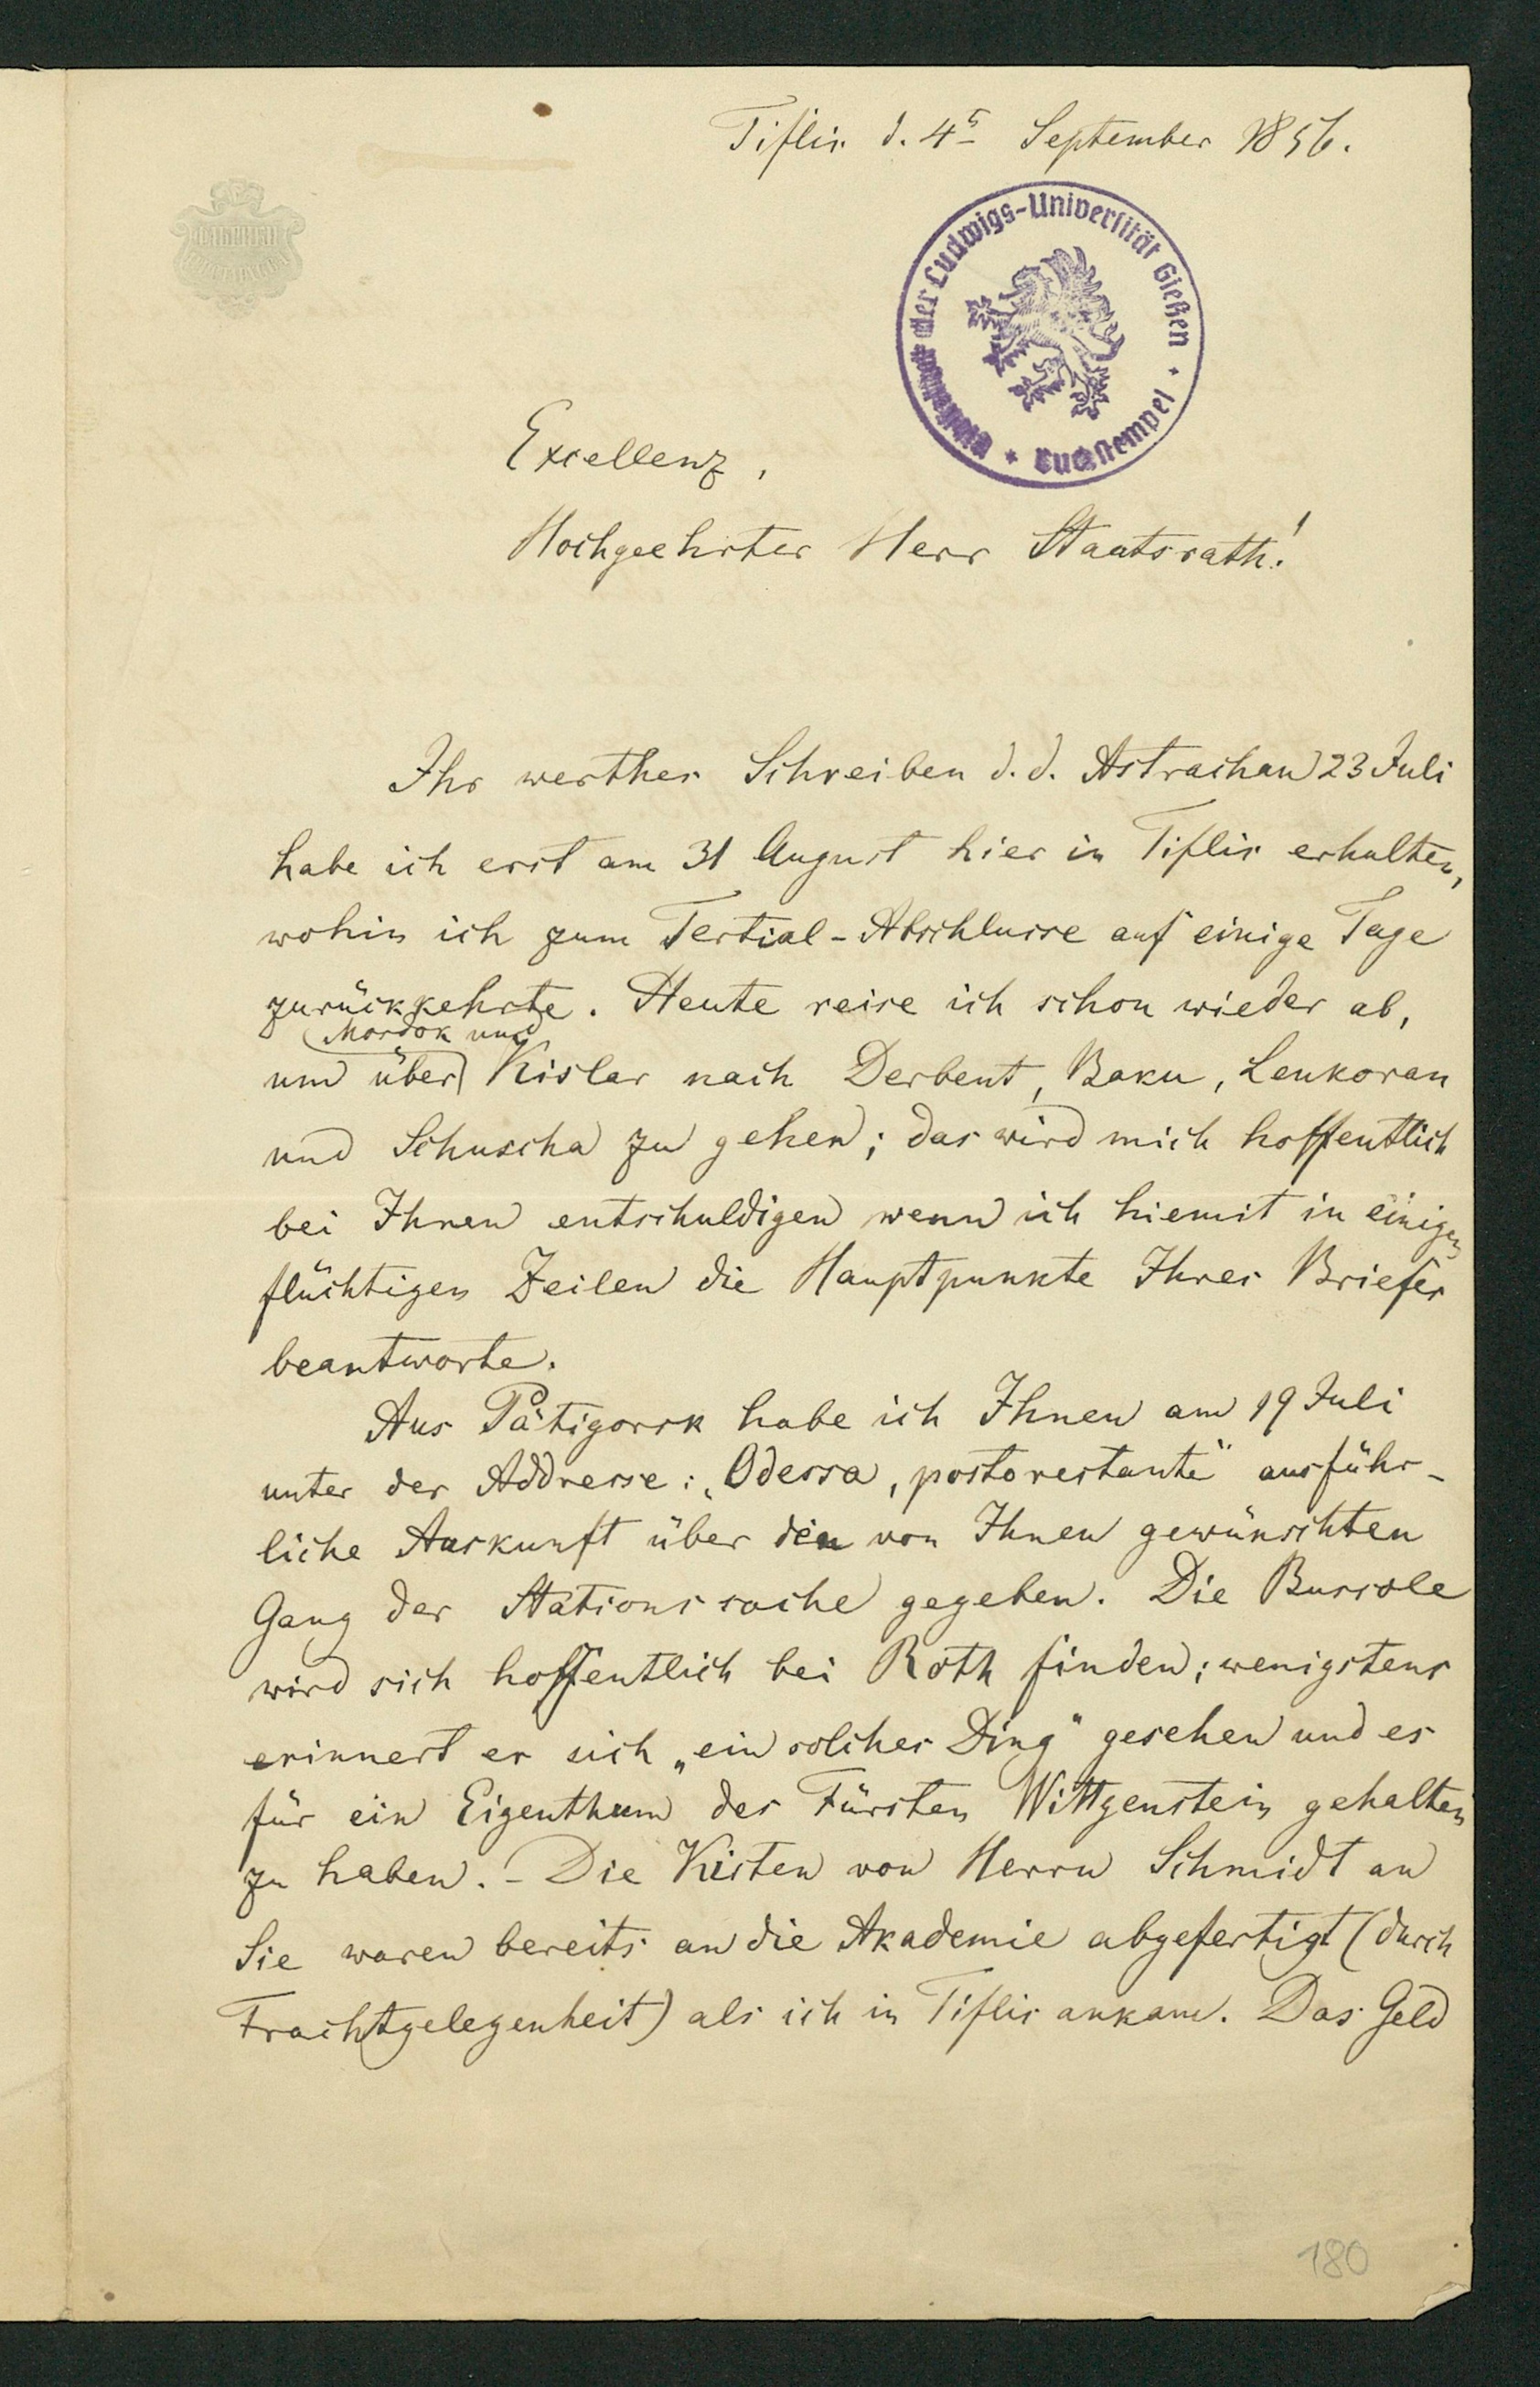 Tiflis d. 4ᵗ September 1856.
Bibliothek der Ludwigs-Universität Gießen * Buchstempel *
Excellenz,
Hochgeehrter Herr Staatsrath!
Ihr werthes Schreiben d. d. Astrachan 23 Juli
habe ich erst am 31 August hier in Tiflis erhalten,
wohin ich zum Tertial-Abschlusse auf einige Tage
zurückkehrte. Heute reise ich schon wieder ab,
Mosdok und
um über Kislar nach Derbent, Baku, Lenkoran
und Schuscha zu gehen; das wird mich hoffentlich
bei Ihnen entschuldigen wenn ich hiemit in einigen
flüchtigen Zeilen die Hauptpunkte Ihres Briefes
beantworte.
Aus Pätigorsk habe ich Ihnen am 19 Juli
unter der Addresse: „Odessa, postorestante" ausführ-
liche Auskunft über den von Ihnen gewünschten
Gang der Stationssache gegeben. Die Bussole
wird sich hoffentlich bei Roth finden; wenigstens
erinnert er sich „ein solches Ding" gesehen und es
für ein Eigenthum des Fürsten Wittgenstein gehalten
zu haben. - Die Kisten von Herrn Schmidt an
Sie waren bereits an die Akademie abgefertigt (durch
Frachtgelegenheit) als ich in Tiflis ankam. Das Geld
180